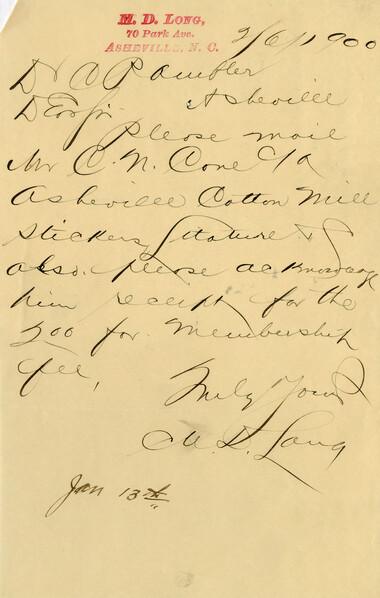 M. D. LONG,
70 Park Ave.
ASHEVILLE, N. C.
2/6/1900
Dr C P Ambler
Dear Sir Asheville
Please mail
Mr C. N. Cone c/o
Asheville Cotton Mill
Stickers &
also. please acknowledge
him receipt for the
200 for Membership
fee,
Truly Yours
M. D. Long
Jan 13th